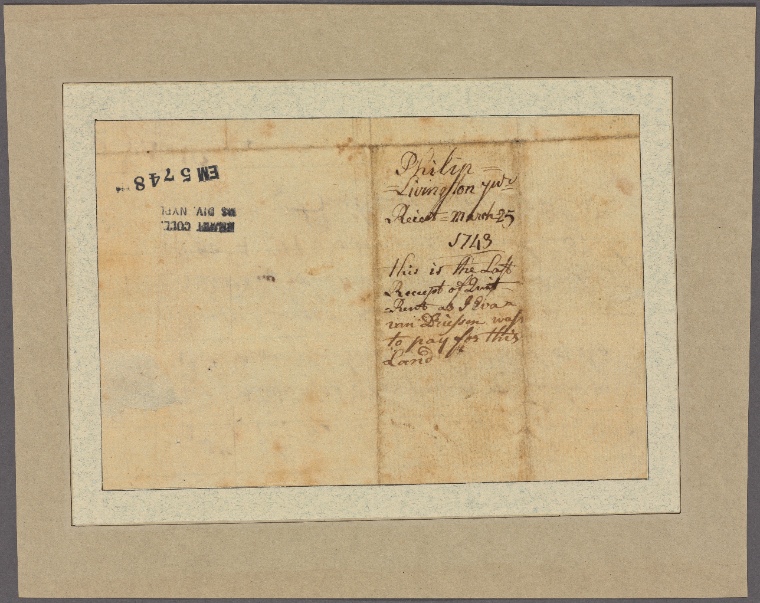 Philip =
= Livingston
Reict = March 25
1743
this is the Last
Receipt of Quit =
= Rent as I Eva =
van Driessen was
to pay for this
Land
EM 5748
EMMET COLL.
MS DIV. NYPL